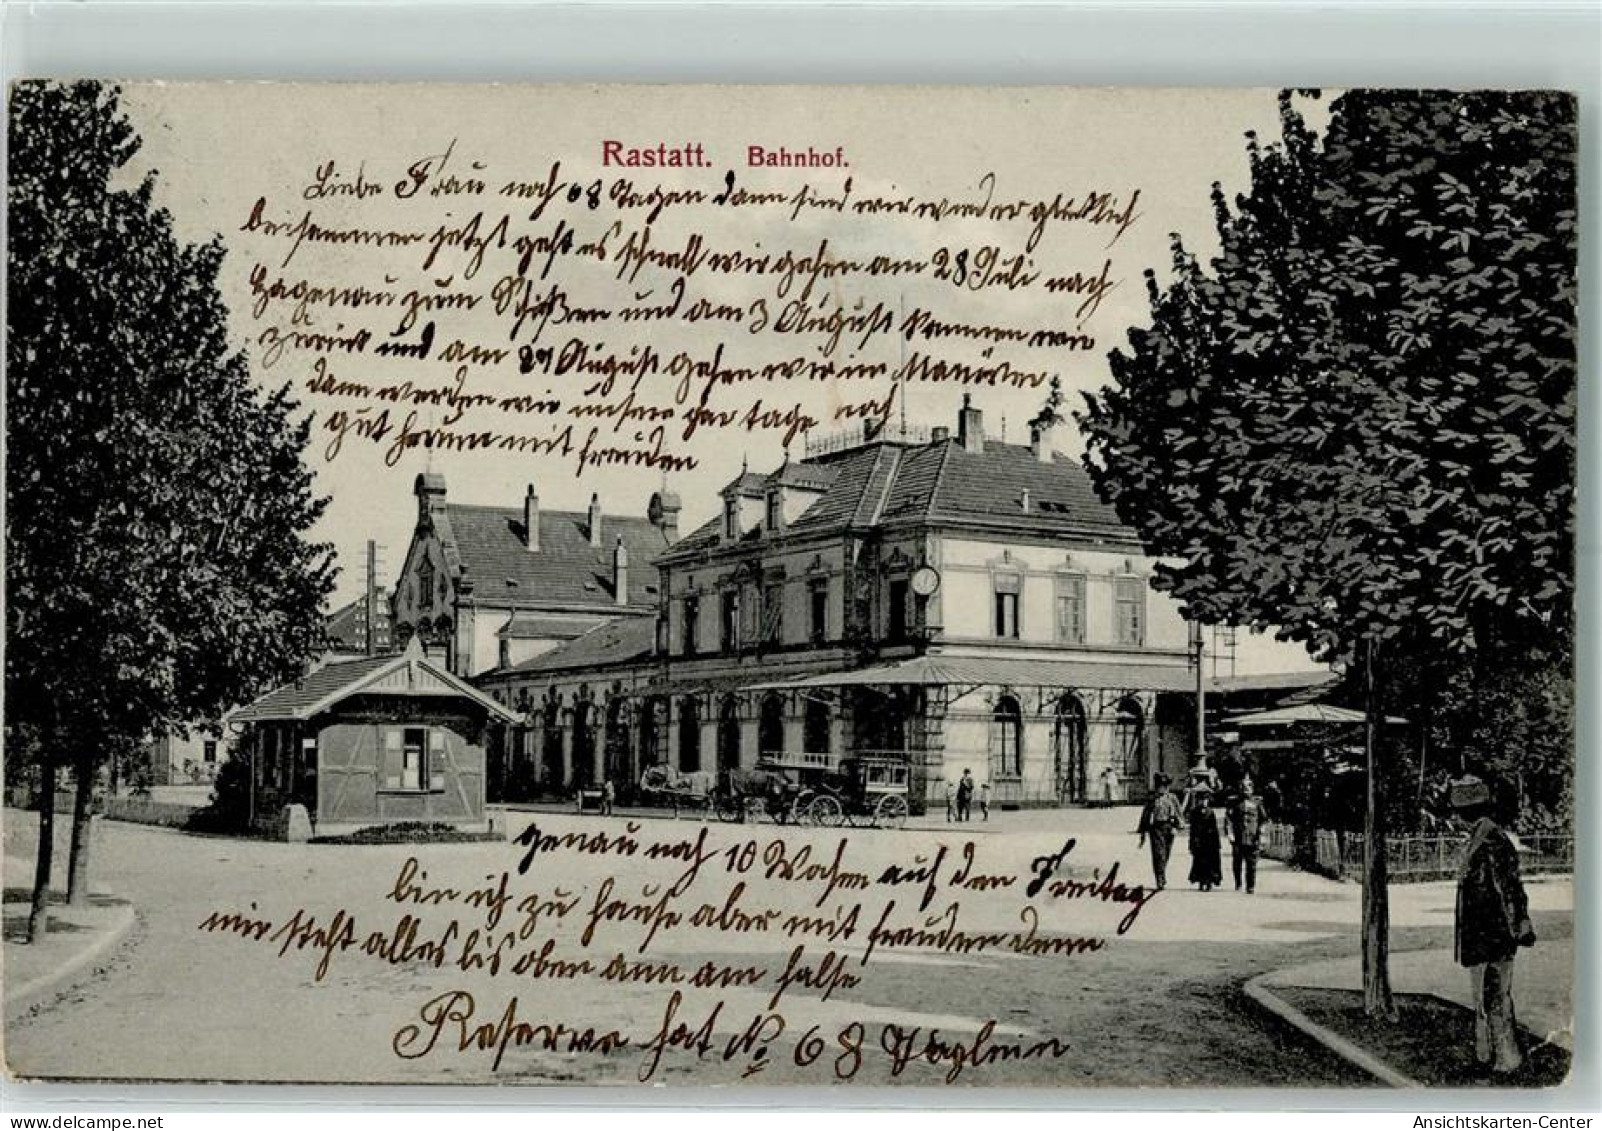 Rastatt. Bahnhof.
Liebe Frau noch 68 Tagen dann sind wir wieder glücklich
beisammen jetzt geht es schnell wir gehen am 28 Juli nach
Hagenau zum Schißen und am 3 August kommen wir
zürück und am August gehen wir im Manöver
dann werden wir unsere par tage noch
gut herum mit freuden
genau noch 10 Wochen auf den Freitag
bin ich zu hause aber mit freuden denn
mir steht alles bis oben ann am halse
Reserve hat No 68 Täglein
Ansichtskarten-Center